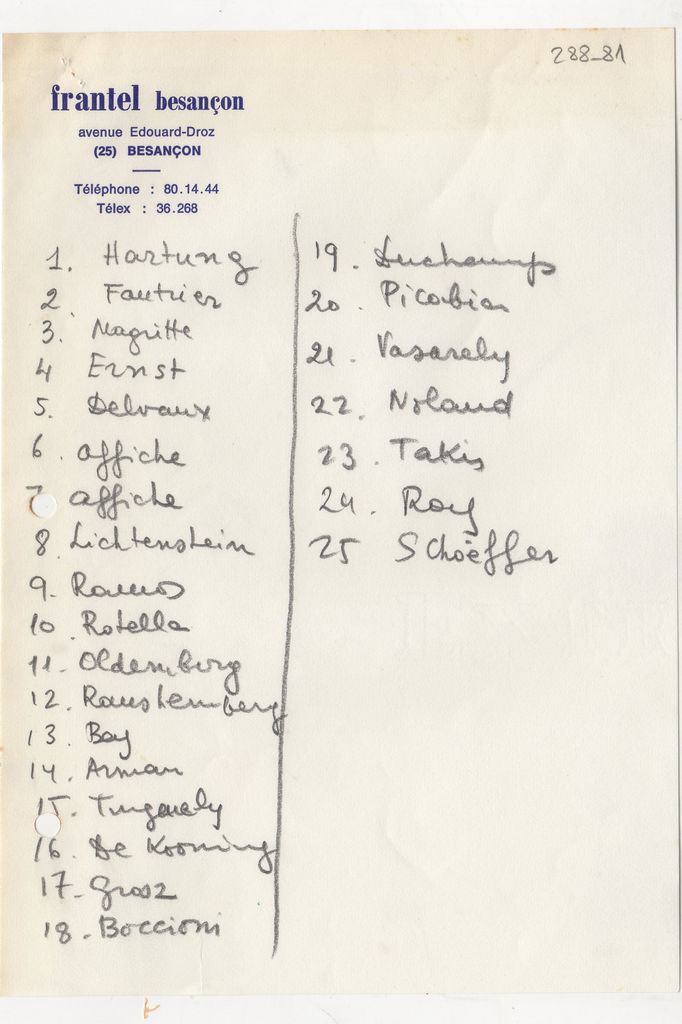 288-81
frantel besançon
avenue Edouard-Droz
(25) BESANÇON
Téléphone : 80.14.44
Télex : 36.268
1. Hartung
2 Fautrier
3. Magritte
4 Ernst
5. Delvaux
6. affiche
7 affiche
8 Lichtenstein
9. Ramos
10 Rotella
11. Oldemburg
12. Raushemberg
13. Bay
14. Arman
15. Tinguely
16. De Kooning
17- Grosz
18. Boccioni
19. Duchamps
20. Picabia
21. Vasarely
22. Noland
23. Takis
24. Ray
25 Schoëffer